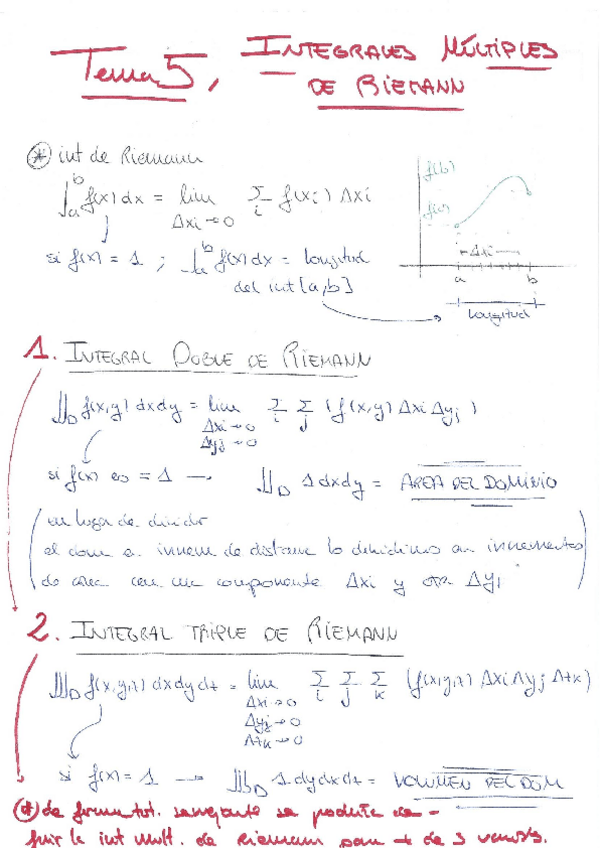 Tema 5, INTEGRALES MÚLTIPLES
DE RIEMANN
* int de Riemann
∫_a^b f(x) dx = lim_{Δxi→0} Σ_i f(xi) Δxi
si f(x) = 1 ; ∫_a^b f(x) dx = longitud
del int [a,b]
f(b)
f(a)
Δxi
a b
longitud
1. INTEGRAL DOBLE DE RIEMANN
∬_D f(x,y) dxdy = lim_{Δxi→0, Δyj→0} Σ_i Σ_j (f(x,y) Δxi Δyj)
si f(x) = 1 → ∬_D 1 dxdy = AREA DEL DOMINIO
(en lugar de dividir
el dom en de distanc lo dividimos en incrementos
de area con una componente Δxi y otra Δyj)
2. INTEGRAL TRIPLE DE RIEMANN
∭_D f(x,y,z) dxdydz = lim_{Δxi→0, Δyj→0, Δzk→0} Σ_i Σ_j Σ_k (f(x,y,z) Δxi Δyj Δzk)
si f(x) = 1 → ∭_D 1 dydxdz = VOLUMEN DEL DOM
(*) de forma tot. semejante se podría de-
finir la int mult. de Riemann para + de 3 variabls.